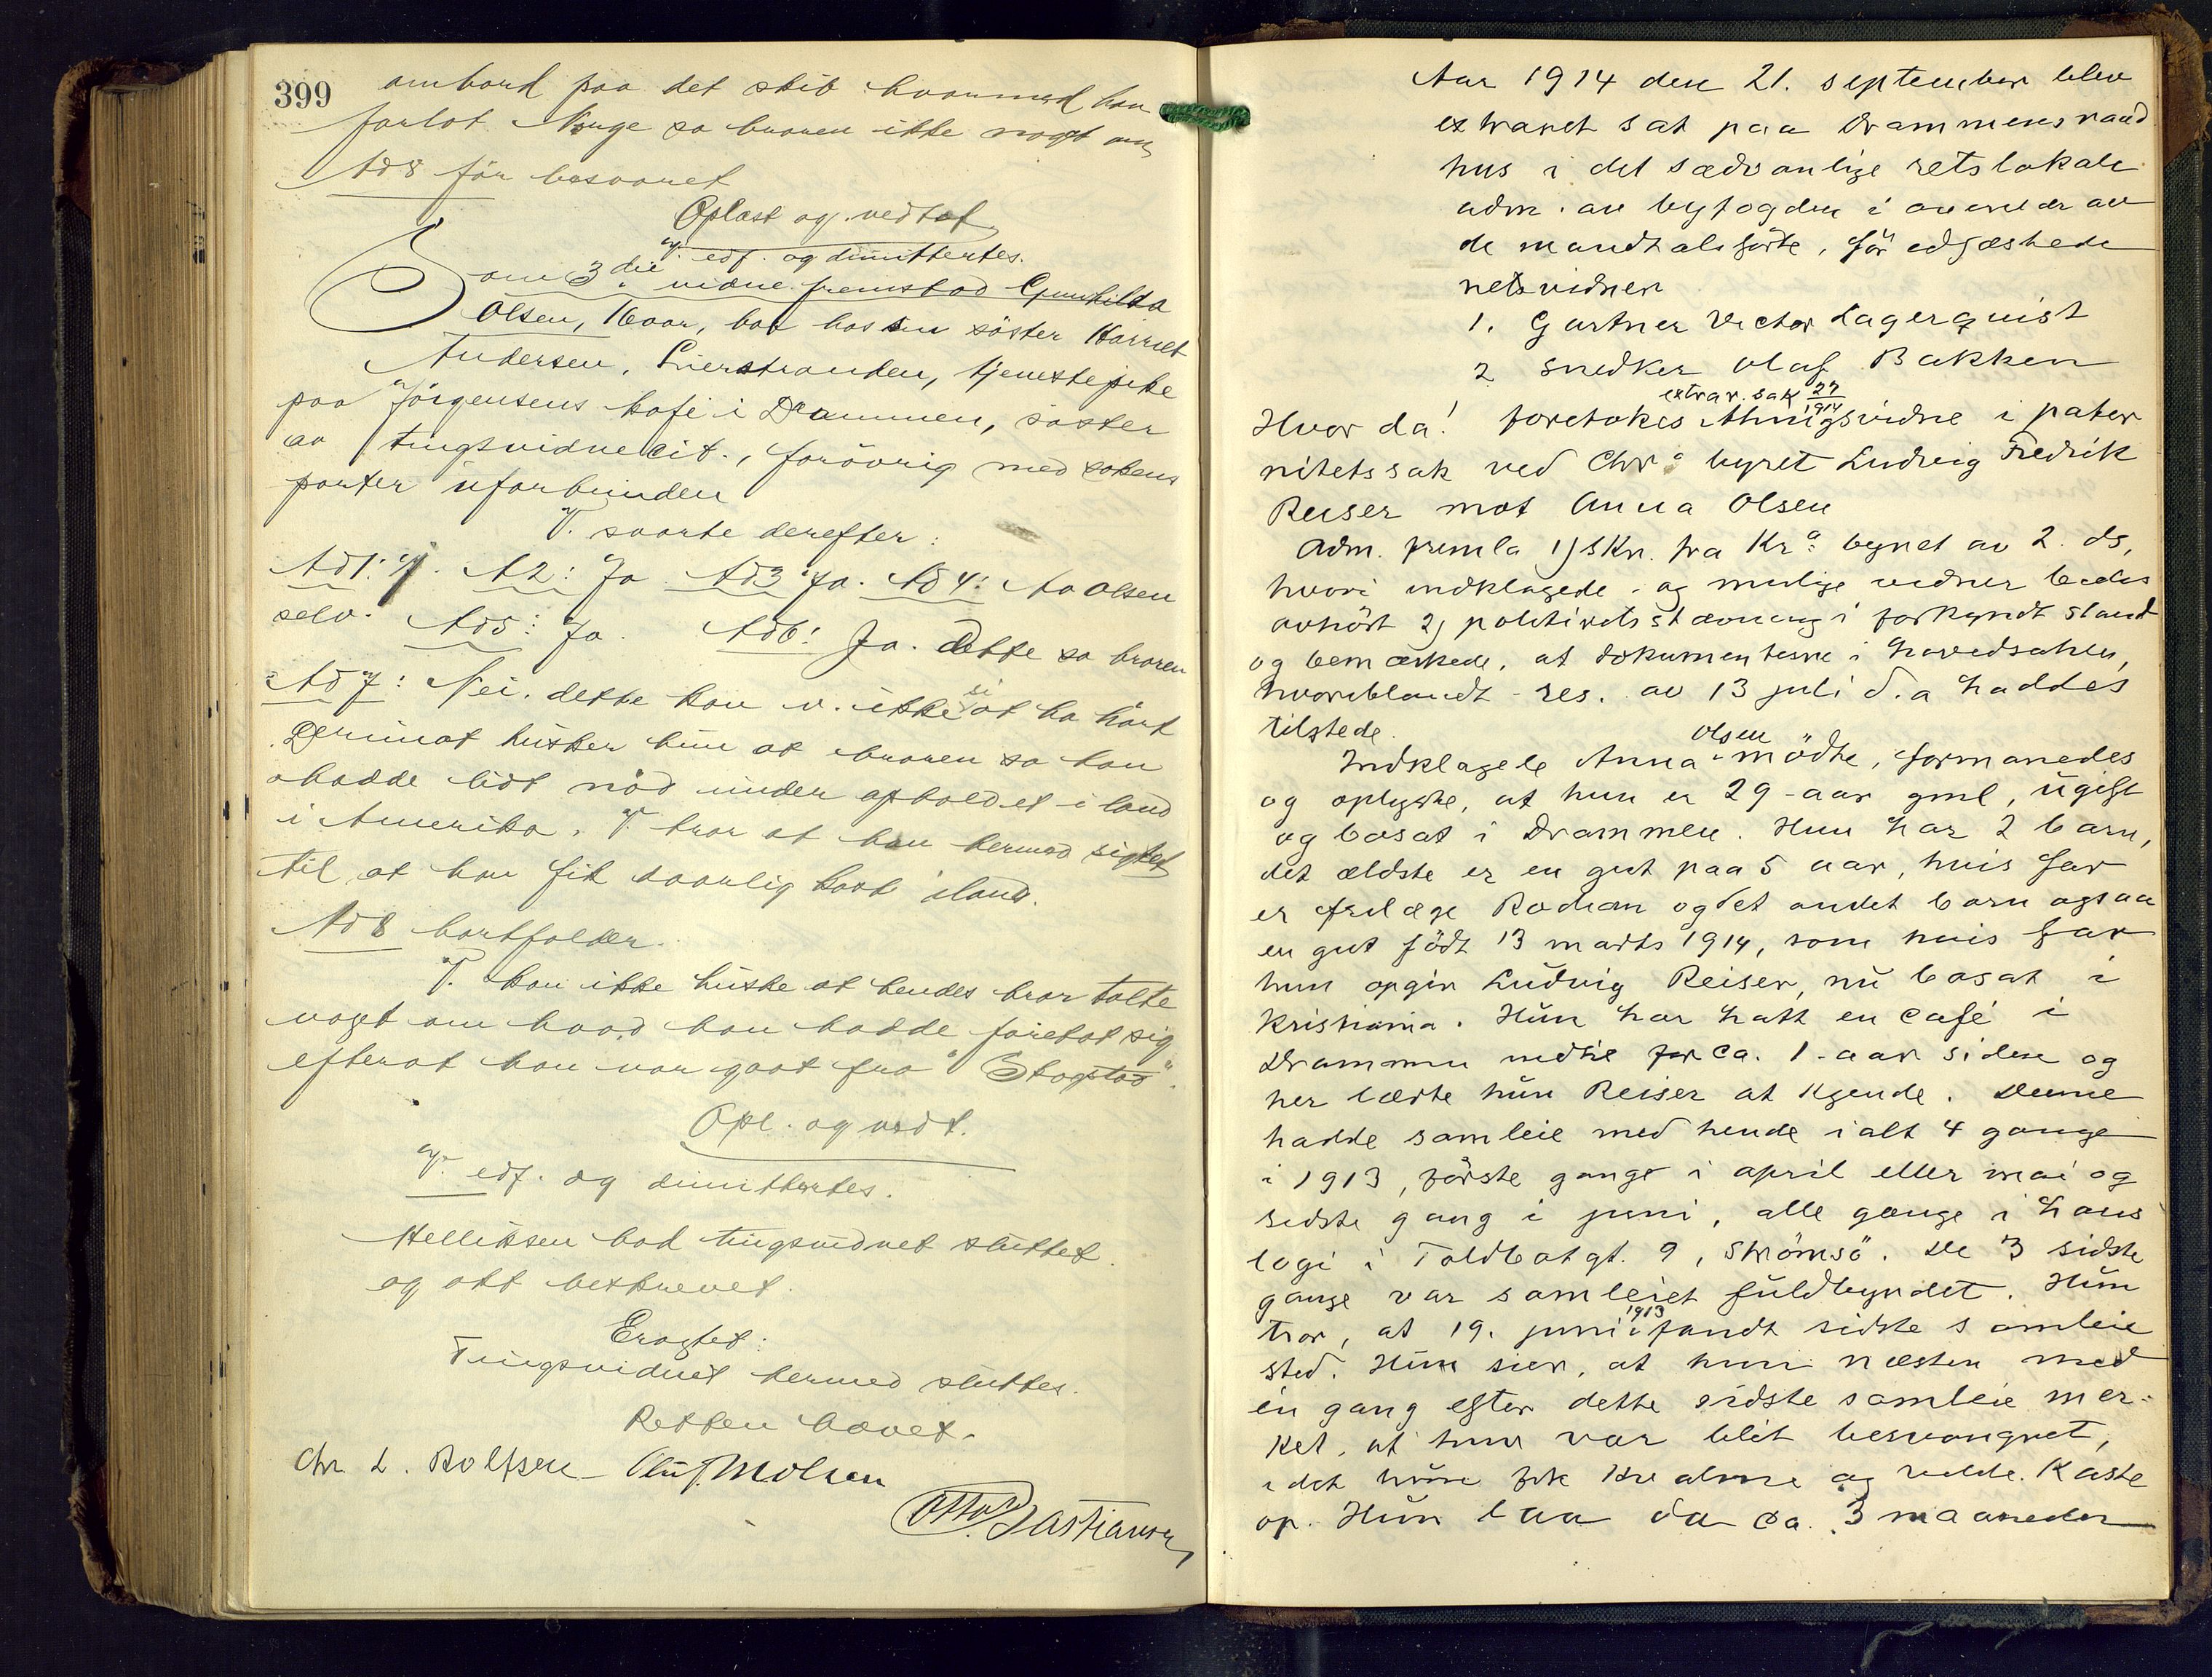 399
ombord paa det skib hvormed han
forlot Norge sa broren ikke noget om
Ad 8 før besvaret
Oplæst og vedtat
V. edf. og dimittertes.
Som 3die vidne fremstod Gunhilda
Olsen, 16 aar, bor hos sin søster Harriet
Andersen, Lierstranden, tjenestepike
paa Jörgensens kafe i Drammen, søster
av tingsvidnecit., forøvrig med sakens
parter uforbunden
V. svarte derefter:
Ad 1: J. A 2: Ja Ad 3 Ja. Ad 4: Aa Olsen
selv. Ad 5: Ja. Ad 6: Ja. Dette sa broren
Ad 7: Nei. dette kan v. ikke si at ha hørt
Derimot husker hun at broren sa han
hadde lidt nød under opholdet i land
i Amerika. V. tror at han hermed sigtet
til at han fik daarlig kost iland.
Ad 8 bortfalder.
V. kan ikke huske at hendes bror talte
noget om hvad han hadde foretat sig
efterat han var gaat fra "Skogstad".
Opl. og vedt.
V. edf. og dimittertes.
Hellilksen bad tingsvidnet sluttet
og att beskrevet.
Eragtet:
Tingsvidnet hermed sluttes.
Retten hævet.
Chr. L. Rolfsen Oluf Molsen
Otto Bastiansen
Aar 1914 den 21. september blev
extraret sat paa Drammens raad
hus i det sædvanlige retslokale
adm. av byfogden i nærvær av
de mandtalsførte, før edfæstede
retsvidner
1. Gartner Victor Lagerquist
2 Snedker Olaf Bakken
extrar. sak 27/1914
Hvor da! foretokes thingsvidne i pater
nitetssak ved Chr.a byret Ludvig Fredrik
Reiser mot Anna Olsen
Adm. fremla 1) skr. fra Kr.a byret av 2. ds,
hvori indklagede og mulige vidner bedes
avhørt 2) politiretsstævning i forkyndt stand
og bemerkede, at dokumenterne i hovedsaken,
hvoriblandt res. av 13 juli d.a haddes
tilstede.
Indklagede Anna Olsen mødte, formanedes
og oplyste, at hun er 29 aar gml, ugift
og bosat i Drammen. Hun har 2 barn,
det ældste er en gut paa 5 aar, hvis far
er Rodian og det andet barn ogsaa
en gut født 13 marts 1914, som hvis far
hun opgir Ludvig Reiser, nu bosat i
Kristiania. Hun har hatt en café i
Drammen indtil for ca. 1 aar siden og
her lærte hun Reiser at kjende. Denne
hadde samleie med hende ialt 4 gange
i 1913, første gang i april eller mai og
sidste gang i juni, alle gange i hans
logi i Toldbotgt. 9, Strømsø. De 3 sidste
gange var samleiet fuldbyrdet. Hun
tror, at 19. juni 1913 fandt sidste samleie
sted. Hun sier, at hun næsten med
en gang efter dette sidste samleie mer-
ket, at hun var blit besvangret,
idet hun fik kvalme og vilde kaste
op. Hun laa da ca. 3 maaneder